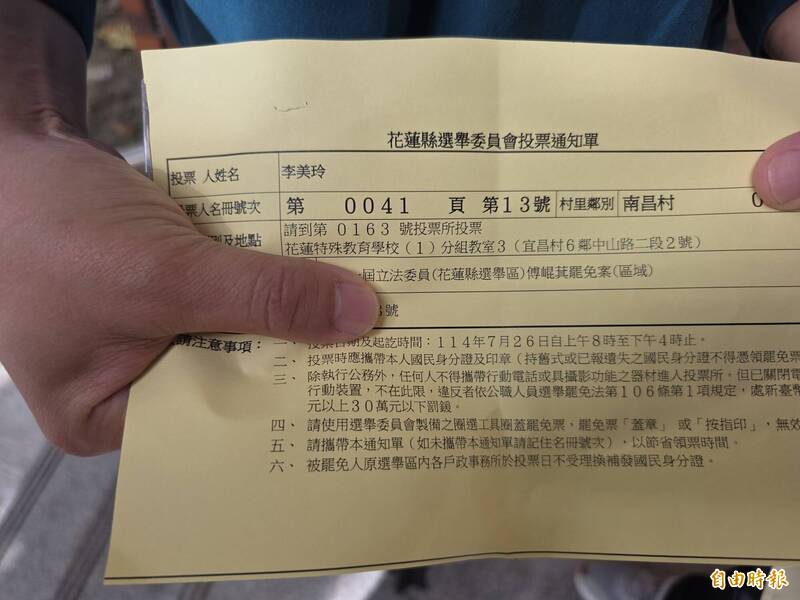 花蓮縣選舉委員會投票通知單
投票 人姓名 李美玲
票人名冊號次 第 0041 頁 第13號 村里鄰別 南昌村 0
別及地點 請到第 0163 號投票所投票
花蓮特殊教育學校(1)分組教室3(宜昌村6鄰中山路二段2號)
屆立法委員(花蓮縣選舉區)傅崐萁罷免案(區域)
號
請注意事項:
一、 投票日期及起訖時間:114年7月26日自上午8時至下午4時止。
二、 投票時應攜帶本人國民身分證及印章(持舊式或已報遺失之國民身分證不得憑領罷免票
三、 除執行公務外,任何人不得攜帶行動電話或具攝影功能之器材進入投票所。但已關閉電
行動裝置,不在此限,違反者依公職人員選舉罷免法第106條第1項規定,處新臺幣
元以上30萬元以下罰鍰。
四、 請使用選舉委員會製備之圈選工具圈蓋罷免票,罷免票「蓋章」或「按指印」,無效
五、 請攜帶本通知單(如未攜帶本通知單請記住名冊號次),以節省領票時間。
六、 被罷免人原選舉區內各戶政事務所於投票日不受理換補發國民身分證。
自由時報